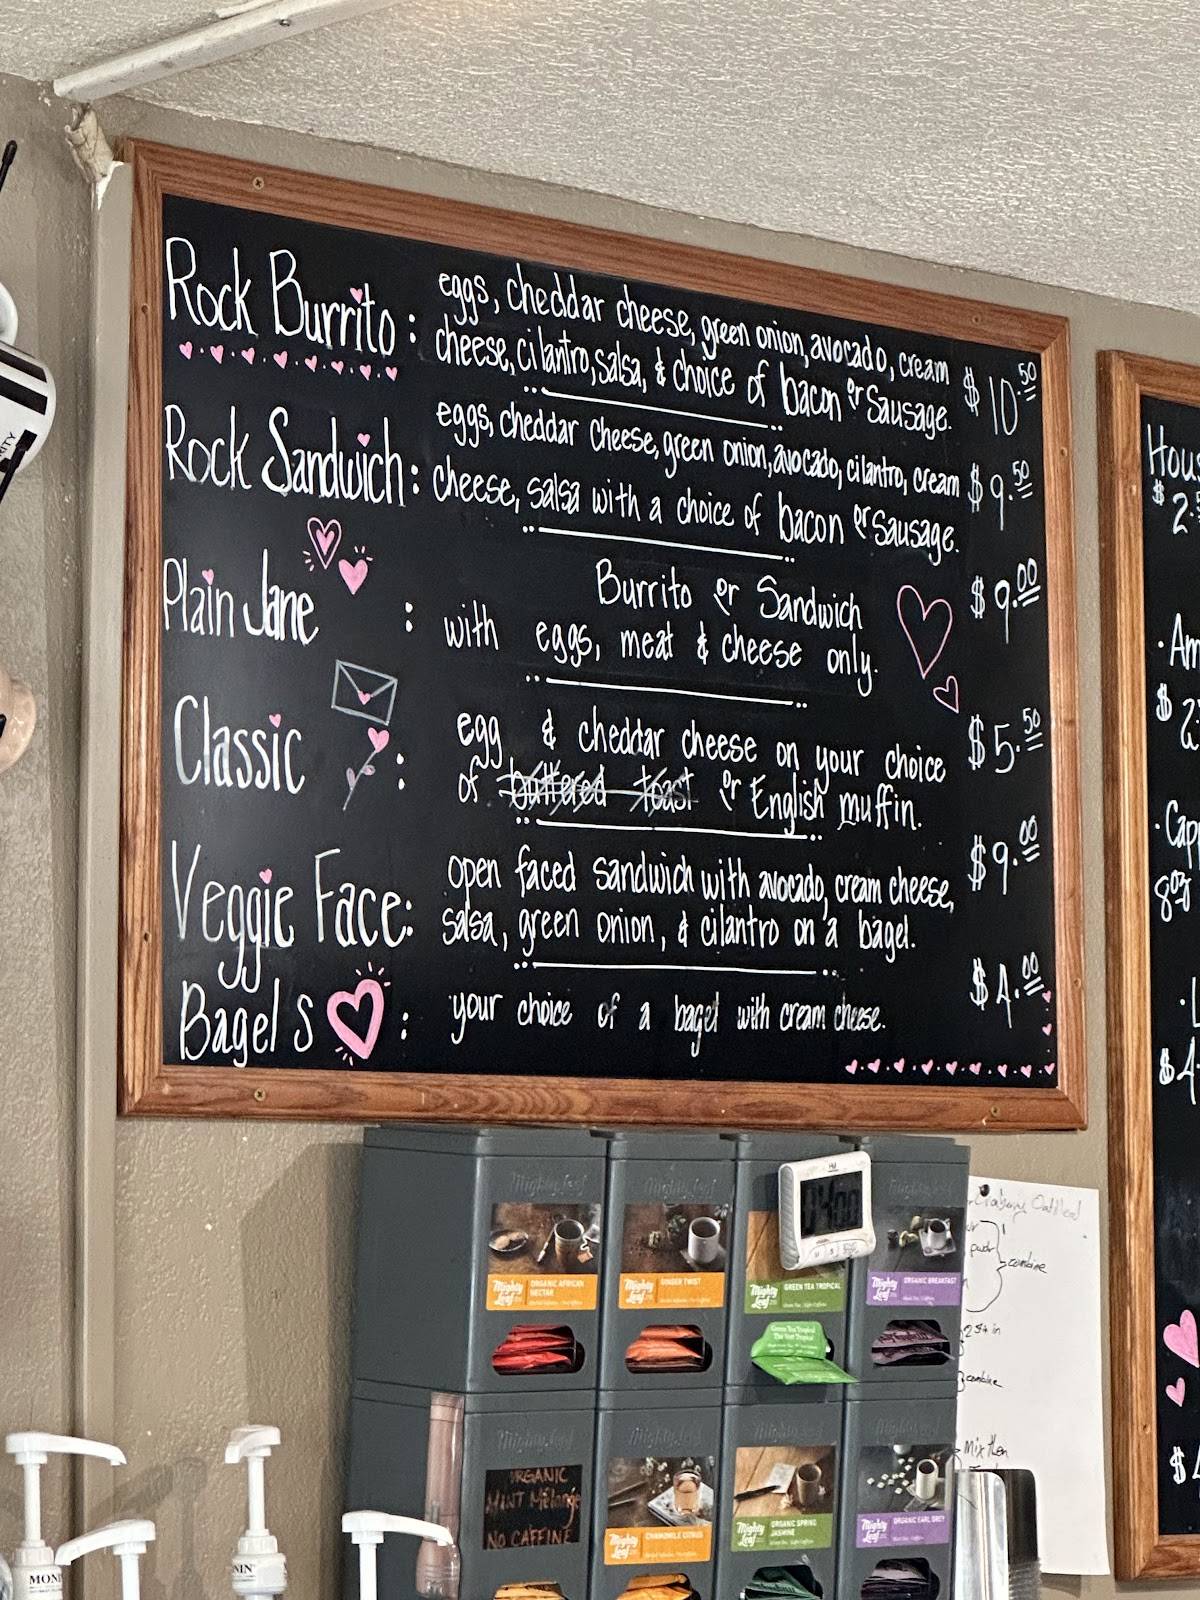 Rock Burrito : eggs, cheddar cheese, green onion, avocado, cream
cheese, cilantro, salsa, & choice of bacon or Sausage. $10.50
Rock Sandwich : eggs, cheddar cheese, green onion, avocado, cilantro, cream
cheese, salsa with a choice of bacon or Sausage. $9.50
Plain Jane : Burrito or Sandwich
with eggs, meat & cheese only. $9.00
Classic : egg & cheddar cheese on your choice
of buttered toast or English muffin. $5.50
Veggie Face: open faced sandwich with avocado, cream cheese,
salsa, green onion, & cilantro on a bagel. $9.00
Bagels : your choice of a bagel with cream cheese. $4.00
Hous
$2.5
· Am
$2
· Cap
8oz
· L
$4.
$4
Mighty Leaf
Mighty Leaf
Mighty Leaf
Mighty Leaf ORGANIC AFRICAN
NECTAR
Mighty Leaf GINGER TWIST
Mighty Leaf GREEN TEA TROPICAL
Mighty Leaf ORGANIC BREAKFAST
Green Tea Tropical
04:00
Oatmeal
combine
254 in
combine
Mix then
ORGANIC
MINT Mélange
NO CAFFEINE
Mighty Leaf CHAMOMILE CITRUS
Mighty Leaf ORGANIC SPRING
JASMINE
Mighty Leaf ORGANIC EARL GREY
MONI
NIN
RITY